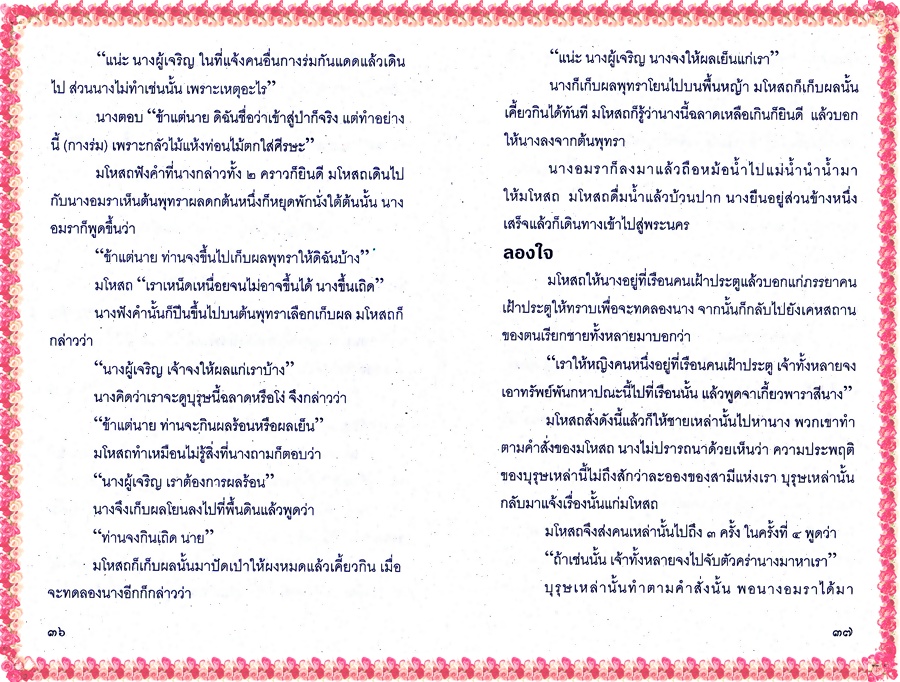 “แน่ะ นางผู้เจริญ ในที่แจ้งคนอื่นกางร่มกันแดดแล้วเดิน
ไป ส่วนนางไม่ทำเช่นนั้น เพราะเหตุอะไร”
นางตอบ “ข้าแต่นาย ดิฉันชื่อว่าเข้าสู่ป่าก็จริง แต่ทำอย่าง
นี้ (กางร่ม) เพราะกลัวไม้แห้งท่อนไม้ตกใส่ศีรษะ”
มโหสถฟังคำที่นางกล่าวทั้ง ๒ คราวก็ยินดี มโหสถเดินไป
กับนางอมราเห็นต้นพุทราผลดกต้นหนึ่งก็หยุดพักนั่งใต้ต้นนั้น นาง
อมราก็พูดขึ้นว่า
“ข้าแต่นาย ท่านจงขึ้นไปเก็บผลพุทราให้ดิฉันบ้าง”
มโหสถ “เราเหน็ดเหนื่อยจนไม่อาจขึ้นได้ นางขึ้นเถิด”
นางฟังคำนั้นก็ปีนขึ้นไปบนต้นพุทราเลือกเก็บผล มโหสถก็
กล่าวว่า
“นางผู้เจริญ เจ้าจงให้ผลแก่เราบ้าง”
นางคิดว่าเราจะดูบุรุษนี้ฉลาดหรือโง่ จึงกล่าวว่า
“ข้าแต่นาย ท่านจะกินผลร้อนหรือผลเย็น”
มโหสถทำเหมือนไม่รู้สิ่งที่นางถามก็ตอบว่า
“นางผู้เจริญ เราต้องการผลร้อน”
นางจึงเก็บผลโยนลงไปที่พื้นดินแล้วพูดว่า
“ท่านจงกินเถิด นาย”
มโหสถก็เก็บผลนั้นมาปัดเป่าให้ผงหมดแล้วเคี้ยวกิน เมื่อ
จะทดลองนางอีกก็กล่าวว่า
๓๖
“แน่ะ นางผู้เจริญ นางจงให้ผลเย็นแก่เรา”
นางก็เก็บผลพุทราโยนไปบนพื้นหญ้า มโหสถก็เก็บผลนั้น
เคี้ยวกินได้ทันที มโหสถก็รู้ว่านางนี้ฉลาดเหลือเกินก็ยินดี แล้วบอก
ให้นางลงจากต้นพุทรา
นางอมราก็ลงมาแล้วถือหม้อน้ำไปแม่น้ำนำน้ำมา
ให้มโหสถ มโหสถดื่มน้ำแล้วบ้วนปาก นางยืนอยู่ส่วนข้างหนึ่ง
เสร็จแล้วก็เดินทางเข้าไปสู่พระนคร
ลองใจ
มโหสถให้นางอยู่ที่เรือนคนเฝ้าประตูแล้วบอกแก่ภรรยาคน
เฝ้าประตูให้ทราบเพื่อจะทดลองนาง จากนั้นก็กลับไปยังเคหสถาน
ของตนเรียกชายทั้งหลายมาบอกว่า
“เราให้หญิงคนหนึ่งอยู่ที่เรือนคนเฝ้าประตู เจ้าทั้งหลายจง
เอาทรัพย์พันกหาปณะนี้ไปที่เรือนนั้น แล้วพูดจาเกี้ยวพาราสีนาง”
มโหสถสั่งดังนี้แล้วก็ให้ชายเหล่านั้นไปหานาง พวกเขาทำ
ตามคำสั่งของมโหสถ นางไม่ปรารถนาด้วยเห็นว่า ความประพฤติ
ของบุรุษเหล่านี้ไม่ถึงสักว่าละอองของสามีแห่งเรา บุรุษเหล่านั้น
กลับมาแจ้งเรื่องนั้นแก่มโหสถ
มโหสถจึงส่งคนเหล่านั้นไปถึง ๓ ครั้ง ในครั้งที่ ๔ พูดว่า
“ถ้าเช่นนั้น เจ้าทั้งหลายจงไปจับตัวคร่านางมาหาเรา”
บุรุษเหล่านั้นทำตามคำสั่งนั้น พอนางอมราได้มา
๓๗